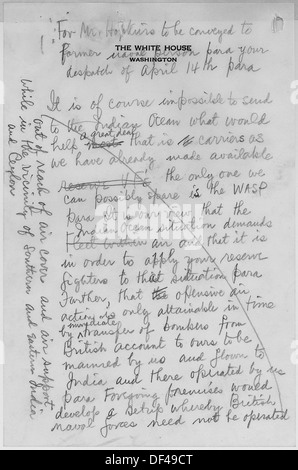 For Mr. Hopkins to be conveyed to
former naval person para your
THE WHITE HOUSE
WASHINGTON
despatch of April 14th para
It is of course impossible to send
to the Indian Ocean what would
help a great deal that is carriers as
we have already made available
the only one we
can possibly spare is the WASP
Para It is our view that the
Indian Ocean situation demands
air and that it is
in order to apply your reserve
fighters to that situation para
Further, that offensive air
action is only attainable in time
by immediate transfer of bombers from
British account to ours to be
manned by us and flown to
India and there operated by us
para Forgoing premises would
develop a setup whereby British
naval forces need not be operated
out of reach of air cover and air support
while in the vicinity of Southern and eastern India
and Ceylon
alamy
DF49CT